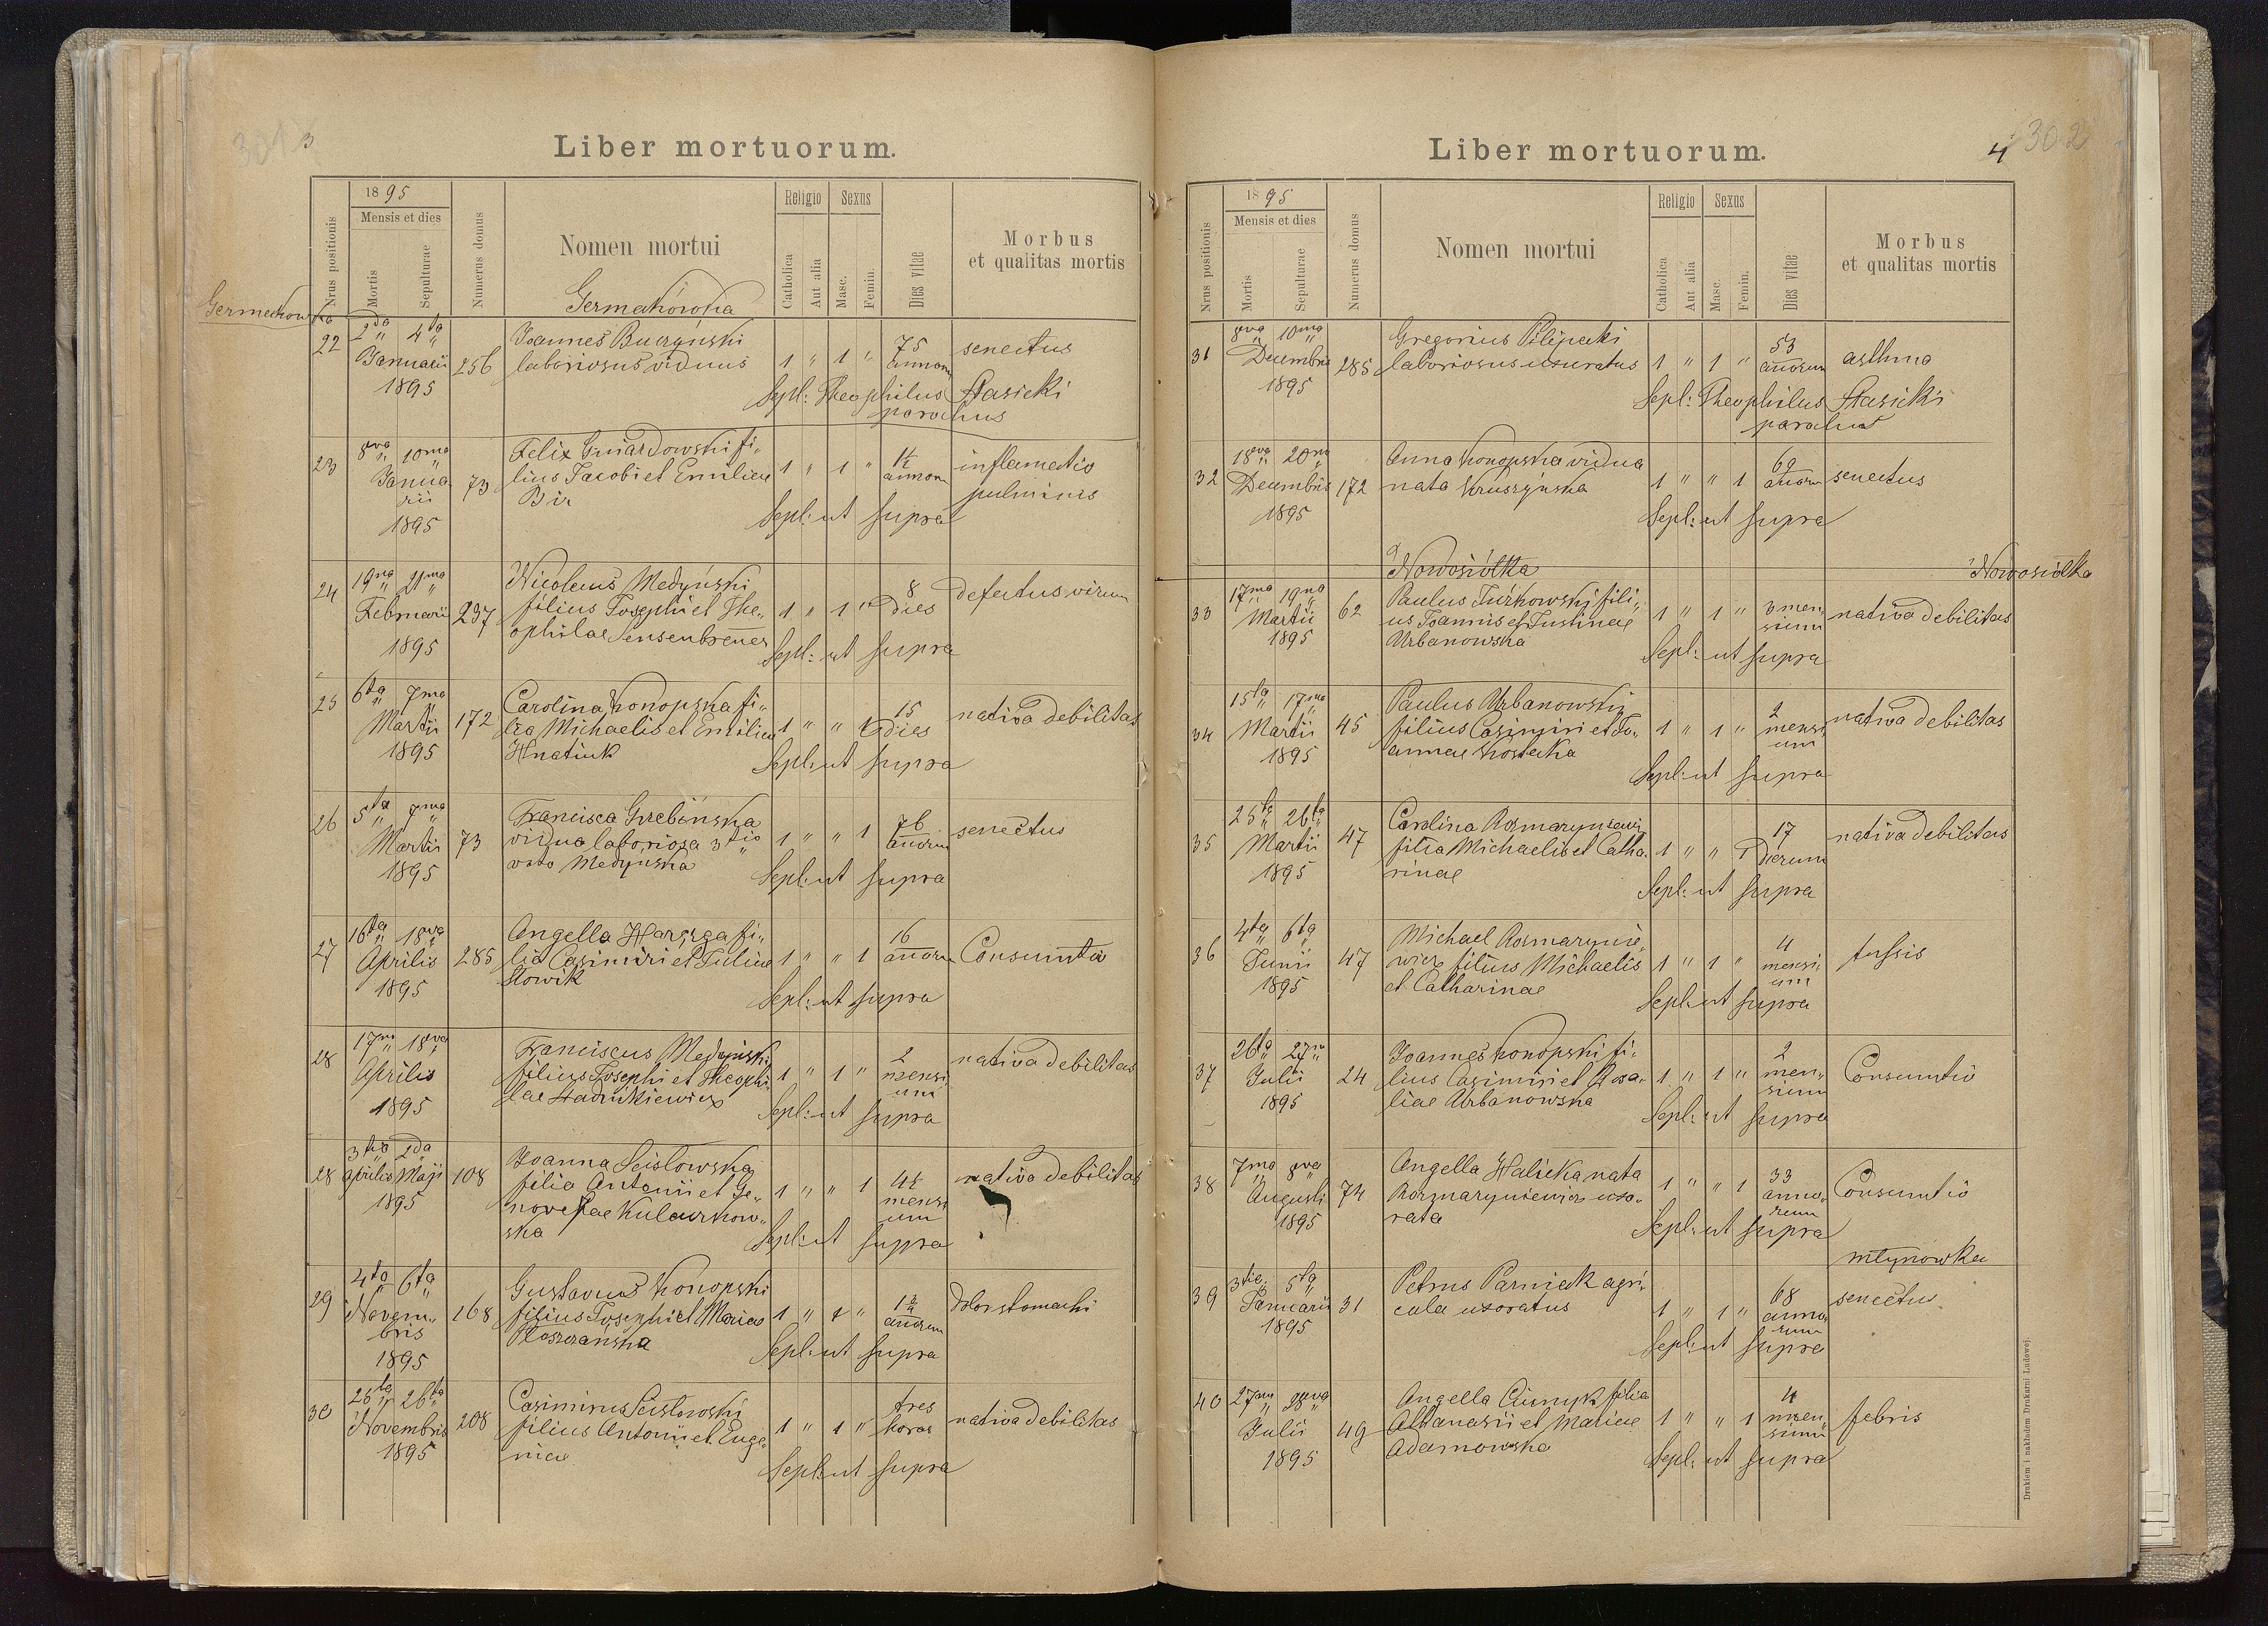 301 3
Liber mortuorum.
Nrus positionis
1895
Mensis et dies
Mortis
Sepulturae
Numerus domus
Nomen mortui
Religio
Catholica
Aut alia
Sexus
Masc.
Femin.
Dies vitae
Morbus
et qualitas mortis
Germakówka
22 2da 4ta
Januarii
1895
256
Joannes Buczyński
laboriosus viduus
1 " 1 "
75
annorum
senectus
Sepl: Theophilus Stasicki
parochus
23 8va 10ma
Janua
rii
1895
73
Felix Gwiazdowski fi„
lius Jacobi et Emiliae
Bir
1 " 1 "
1½
annorum
inflamatio
pulminis
Sepl: ut supra
24 19na 21ma
Februarii
1895
237
Nicolaus Medyński
filius Josephi et The„
ophilae Sensenbrener
1 " 1 "
8
dies
defectus virium
Sepl: ut supra
25 6ta 7ma
Martii
1895
172
Carolina Konopska fi„
lia Michaelis et Emiliae
Hnatiuk
1 " " 1
15
dies
nativa debilitas
Sepl: ut supra
26 5ta 7ma
Martii
1895
73
Francisca Grzebińska
vidua laboriosa 3tio
voto Medyńska
1 " " 1
76
annorum
senectus
Sepl: ut supra
27 16ta 18va
Aprilis
1895
285
Angella fi„
lia Casimiri et Juliae
Słowik
1 " " 1
16
annorum
Consumtio
Sepl: ut supra
28 17ma 18va
Aprilis
1895
Franciscus Medyński
filius Josephi et Theophi
lae
1 " 1 "
2
mensi
um
nativa debilitas
Sepl: ut supra
28 3tia 2da
Aprilis Maji
1895
108
Joanna Scisłowska
filia Antonii et Ge„
novefae
ska
1 " " 1
mensi
um
nativa debilitas
Sepl: ut supra
29 4ta 6ta
Novem„
bris
1895
168
Gustavus Konopski
filius Josephi et Mariae
Płoszczańska
1 " 1 "
annorum
dolor stomachi
Sepl: ut supra
30 25ta 26ta
Novembris
1895
208
Casimirus Scisłowski
filius Antonii et Euge„
niae
1 " 1 "
tres
horas
nativa debilitas
Sepl: ut supra
Liber mortuorum.
4 302
Nrus positionis
1895
Mensis et dies
Mortis
Sepulturae
Numerus domus
Nomen mortui
Religio
Catholica
Aut alia
Sexus
Masc.
Femin.
Dies vitae
Morbus
et qualitas mortis
31 8va 10ma
Decembris
1895
285
Gregorius Pilipecki
laboriosus uxuratus
1 " 1 "
53
annorum
asthma
Sepl: Theophilus Stasicki
parochus
32 18va 20ma
Decembris
1895
172
Anna Konopska vidua
nata Kruszyńska
1 " " 1
69
annorum
senectus
Sepl: ut supra
Nowosiółka
Nowosiółka
33 17ma 19na
Martii
1895
62
Paulus Turkowski fili„
us Joannis et Justinae
Urbanowska
1 " 1 "
3 men„
sium
nativa debilitas
Sepl: ut supra
34 15ta 17ma
Martii
1895
45
Paulus Urbanowski
filius Casimiri et Jo„
annae Kostecka
1 " 1 "
2
mensi
um
nativa debilitas
Sepl: ut supra
35 25ta 26ta
Martii
1895
47
Carolina Rozmaryniewicz
filia Michaelis et Catha„
rinae
1 " " 1
17
dierum
nativa debilitas
Sepl: ut supra
36 4ta 6ta
Junii
1895
47
Michael Rozmarynie„
wicz filius Michaelis
et Catharinae
1 " 1 "
4
mensi„
um
tussis
Sepl: ut supra
37 26ta 27ma
Julii
1895
24
Joannes Konopski fi„
lius Casimiri et Rosa„
liae Urbanowska
1 " 1 "
2
men„
sium
Consumtio
Sepl: ut supra
38 7ma 8va
Augusti
1895
74
Angella Halicka nata
Rozmaryniewicz uxo„
rata
1 " " 1
33
anno„
rum
Consumtio
Sepl: ut supra
Młynówka
39 3tia 5ta
Januarii
1895
31
Petrus Parniak agri„
cola uxoratus
1 " 1 "
68
anno„
rum
senectus
Sepl: ut supra
40 27ma 28va
Julii
1895
49
Angella filia
Athanasii et Mariae
Adamowska
1 " " 1
4
men„
sium
febris
Sepl: ut supra
Drukiem i nakładem Drukarni Ludowej.